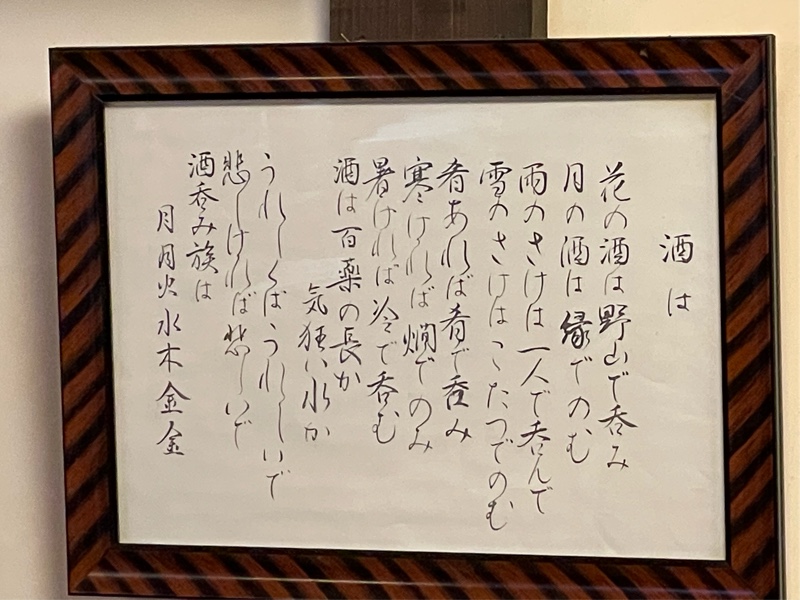 酒は
花の酒は野山で呑み
月の酒は縁でのむ
雨のさけは一人で呑んで
雪のさけはこたつでのむ
肴あれば肴で呑み
寒ければ燗でのみ
暑ければ冷で呑む
酒は百薬の長か
気狂い水か
うれしくばうれしいで
悲しければ悲しいで
酒呑み族は
月月火水木金金